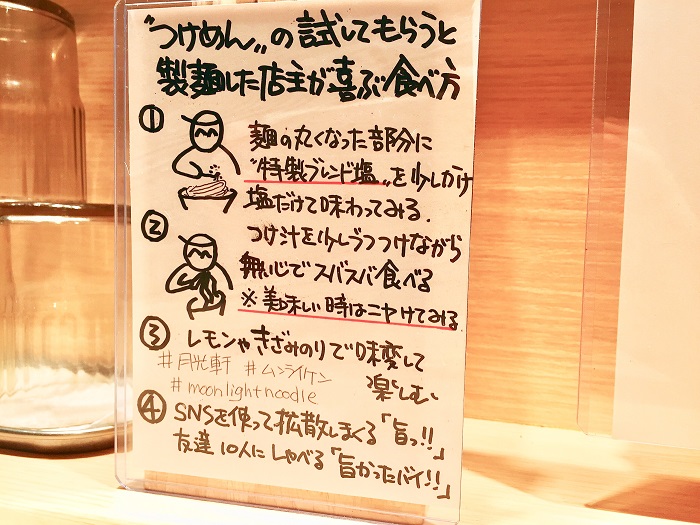 "つけめん"の試してもらうと
製麺した店主が喜ぶ食べ方
① 麺の丸くなった部分に
"特製ブレンド塩"を少しかけ
塩だけで味わってみる.
② つけ汁を少しづつつけながら
無心でズバズバ食べる
※美味しい時はニヤけてみる
③ レモンやきざみのりで味変して
楽しむ
#月光軒 #ムンライケン
#moonlightnoodle
④ SNSを使って拡散しまくる「旨っ!!」
友達10人にしゃべる「旨かったバイ!!」